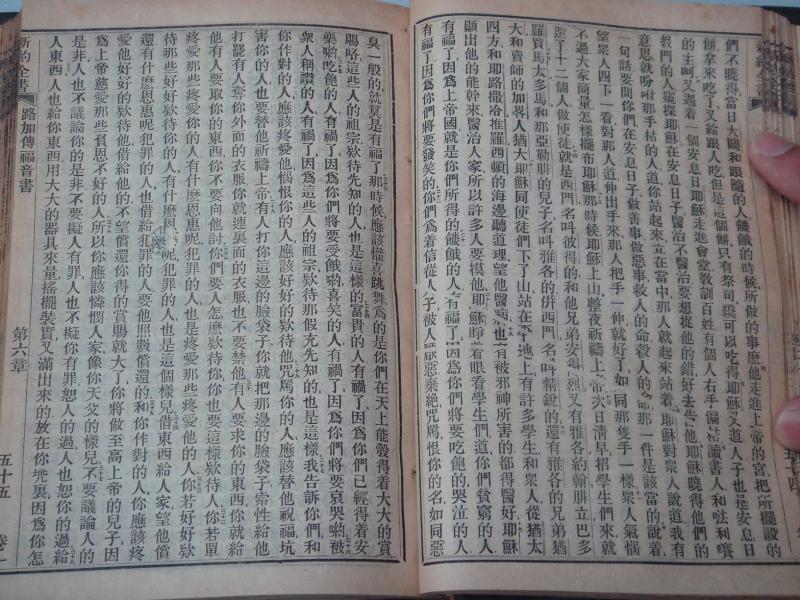 們不曉得當日大闢和跟隨的人饑餓的時候所做的事麽他走進上帝的宮把所擺設的
餅拿來吃了又給跟人吃但是這個餅只有祭司纔可以吃得耶穌又道人子也是安息日
的主呵又遇着一個安息日耶穌走進會堂教訓百姓有個人右手偏枯讀書人和㕸利㘔
教門的人窺探耶穌在安息日子醫治不醫治要想捉他的錯好去告他耶穌曉得他們的
意思就吩咐那手枯的人道你站起來立在當中那人就起來站着耶穌對衆人說道我有
一句話要問你們在安息日子做善事做惡事救人的命殺人的命那一件是該當的說着
望衆人四下一看對那人道伸出手來那人把手一伸就好了如同那隻手一樣衆人氣惱
不過大家商量怎樣擺布耶穌那時候耶穌上山整夜祈禱上帝次日淸早招學生們來就
選了十二個人做使徒就是西門名叫彼得的和他兄弟安得烈又有雅各約翰腓立巴多
羅買馬太多馬和那亞勒腓的兒子名叫雅各的併西門名叫精銳的還有雅各的兄弟猶
大和賣師的加畧人猶大耶穌同使徒們下了山站在平地上有許多學生和衆人從猶太
四方和耶路撒冷推羅西頓的海邊聽道理望他醫病也有被邪神所害的都得醫好耶穌
顯出他的能幹來醫治人家所以許多人要摸他耶穌睜着眼看學生們道你們貧窮的人
有福了因爲上帝國就是你們所得的饑餓的人有福了因爲你們將要吃飽的哭泣的人
有福了因爲你們將要發笑的你們爲着信從人子被人厭惡棄絕咒罵恨你的名如同惡
臭一般的就算是有福了那時候應該懽喜跳舞爲的是你們在天上能彀得着大大的賞
賜咯這些人的祖宗欵待先知的人也是這樣的富貴的人有禍了因爲你們已經得着安
樂喲吃飽的人有禍了因爲你們將要受餓喲喜笑的人有禍了因爲你們將要哀哭喲被
衆人稱讚的人有禍了因爲這些人的祖宗欵待那假充先知的也是這樣我告訴你們和
你作對的人應該疼愛他惱恨你的人應該好好的欵待他咒罵你的人應該替他祝福坑
害你的人也要替他祈禱上帝有人打你這邊的臉袋子你就把那邊的臉袋子索性給他
打罷有人奪你外面的衣服你就連裏面的衣服也不要禁他有人要求你的東西你就給
他有人要取你的東西你不要向他討你們要人怎麽欵待你你也要這樣欵待人你若單
疼愛那些疼愛你的人有什麽恩惠呢犯罪的人也是疼愛那些疼愛他的人你若好好欵
待那些好好欵待你的人有什麽恩惠呢犯罪的人也是這個樣兒借東西給人家望他償
還有什麽恩惠呢犯罪的人也借給犯罪的人要他照數償還的和你作對的人應該疼
愛他好好的欵待他借給他的不望償還你得的賞賜就大了你將做至高上帝的兒子因
爲上帝慈愛那些負恩不好的人所以你應該憐憫人家像你天父的樣兒不要議論人的
是非人也不議論你的是非不要擬人有罪人也不擬你有罪恕人的過人也恕你的過給
人東西人也給你東西用大大的器具來量搖擺裝實又滿出來的放在你兜裏因爲你怎
新約全書 路加傳福音書 第六章 五十五